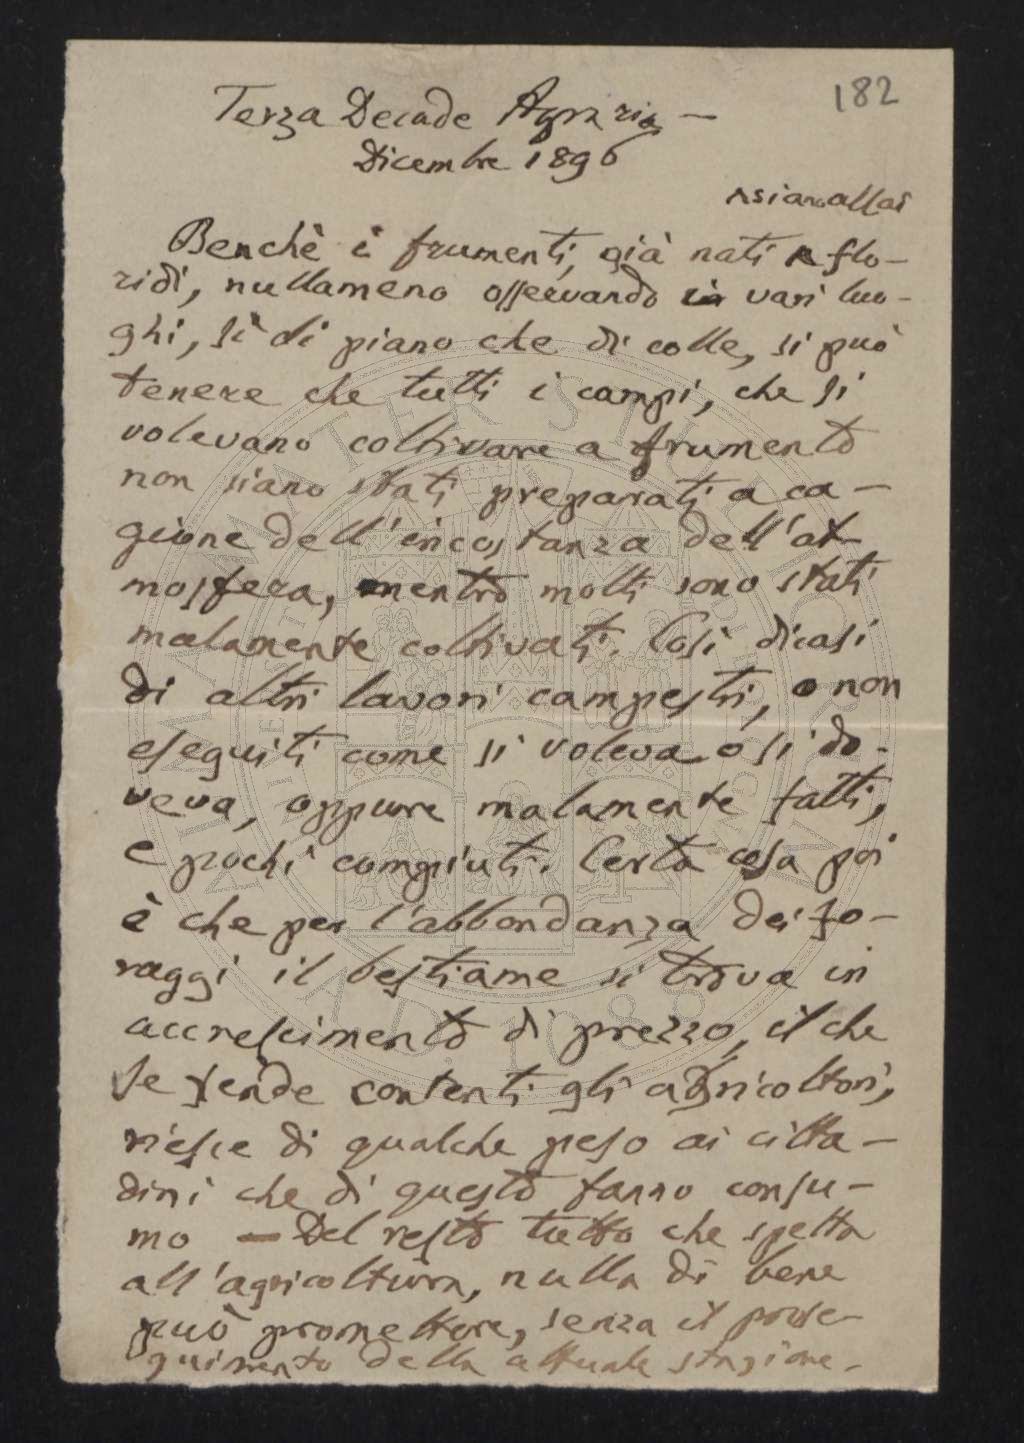 182
Terza Decade Agraria —
Dicembre 1896
Benchè i frumenti, già nati e flo-
ridi, nullameno osservando in vari luo-
ghi, sì di piano che di colle, si può
tenere che tutti i campi, che si
volevano coltivare a frumento
non siano stati preparati a ca-
gione dell'incostanza dell'at-
mosfera, mentre molti sono stati
malamente coltivati. Così dicasi
di altri lavori campestri, o non
eseguiti come si voleva o si do-
veva, oppure malamente fatti,
e pochi compiuti. Certa cosa poi
è che per l'abbondanza dei fo-
raggi il bestiame si trova in
accrescimento di prezzo, il che
se rende contenti gli agricoltori,
riesce di qualche peso ai citta-
dini che di questo fanno consu-
mo — Del resto tutto che spetta
all'agricoltura, nulla di bene
può promettere, senza il prose-
guimento della attuale stagione.
ALMA MATER STUDIORUM
A.D. 1088